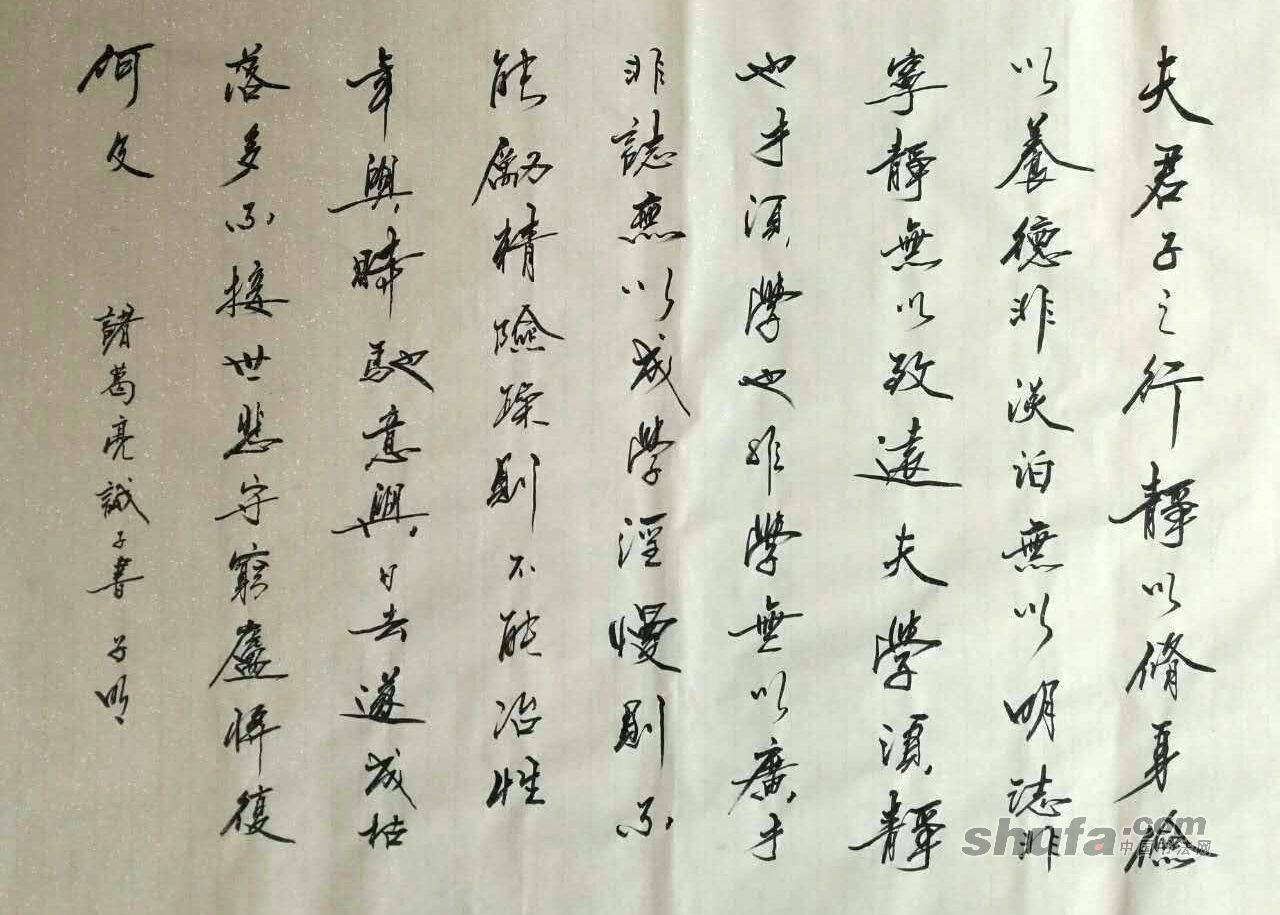 夫君子之行靜以脩身儉
以養德非淡泊無以明誌非
寧靜無以致遠夫學須靜
也才須學也非學無以廣才
非誌無以成學淫慢則不
能勵精險躁則不能冶性
年與時馳意與日去遂成枯
落多不接世悲守窮廬將復
何及
諸葛亮誡子書 子明
shufa.com
中国书法网